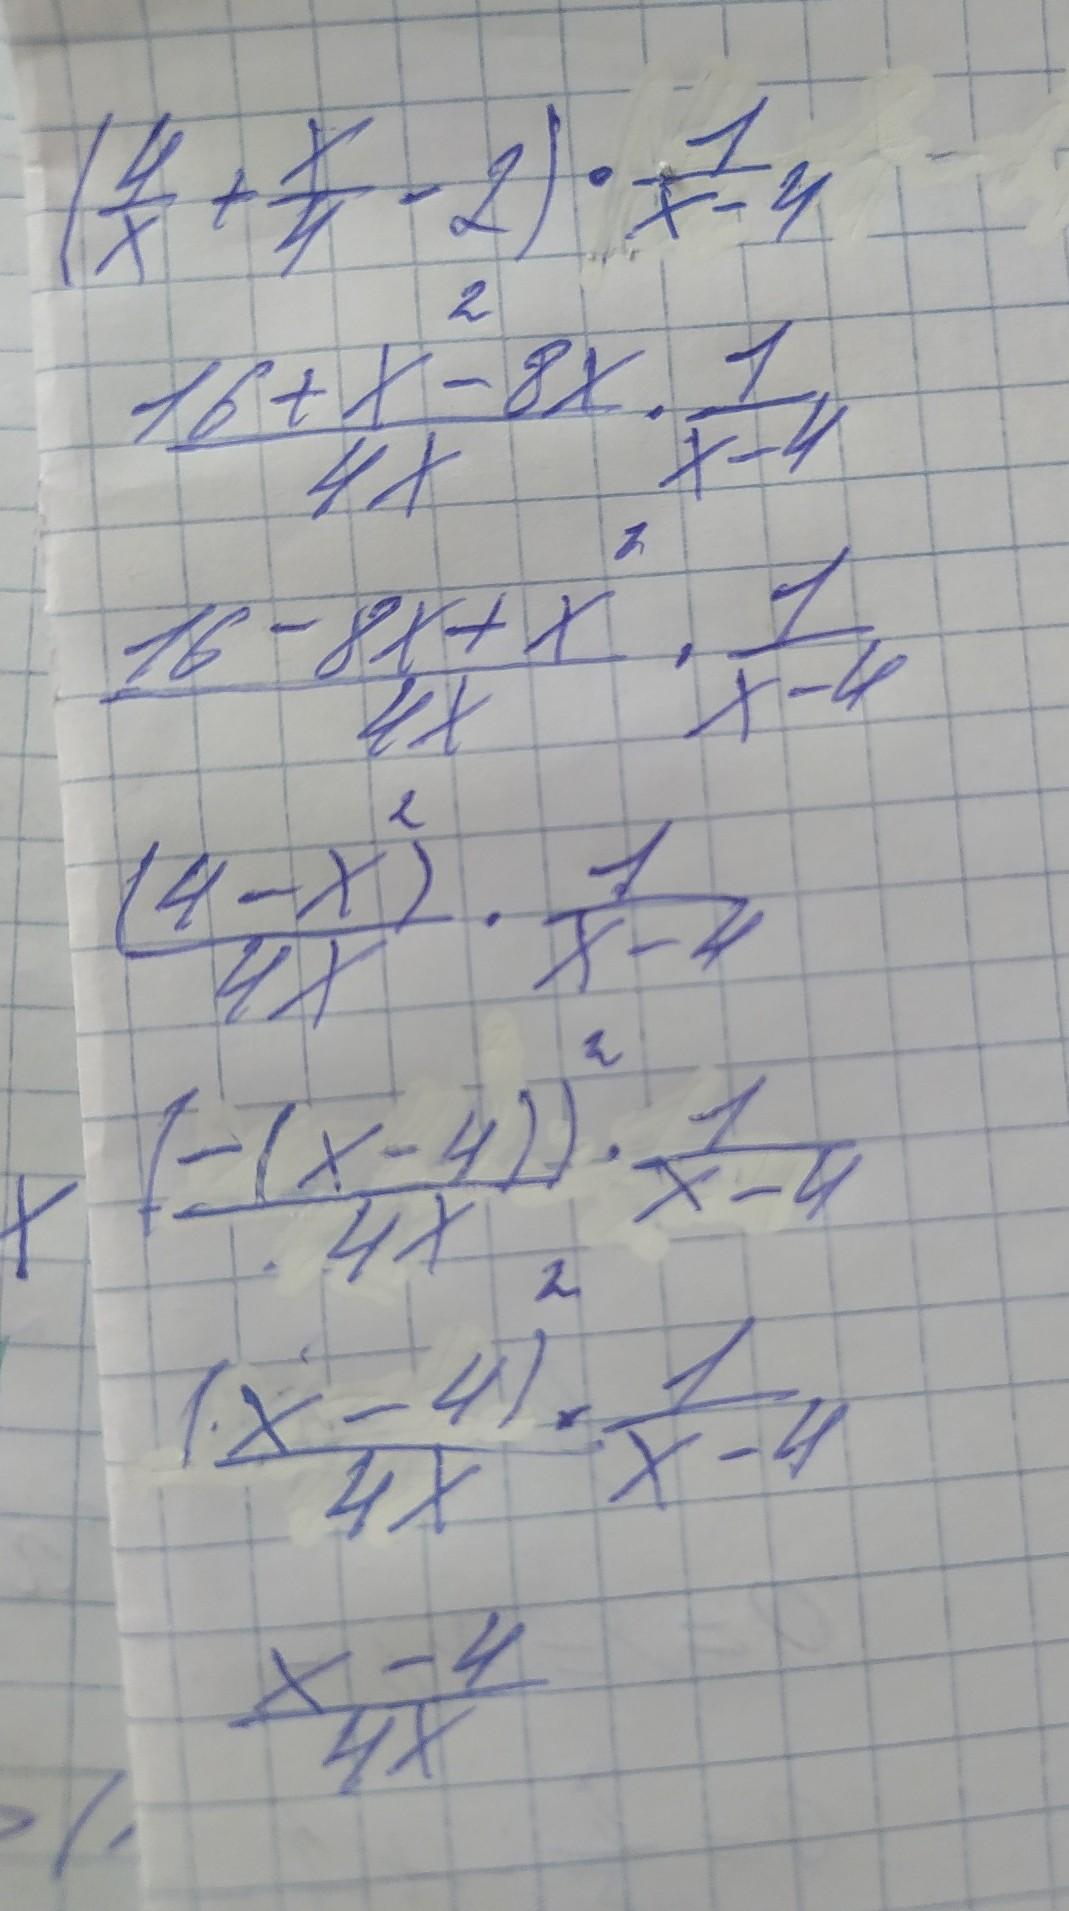 (4/x + x/4 - 2) · 1/(x-4)
(16 + x² - 8x)/(4x) · 1/(x-4)
(16 - 8x + x²)/(4x) · 1/(x-4)
(4-x)²/(4x) · 1/(x-4)
(-(x-4))²/(4x) · 1/(x-4)
(x-4)²/(4x) · 1/(x-4)
(x-4)/(4x)
x